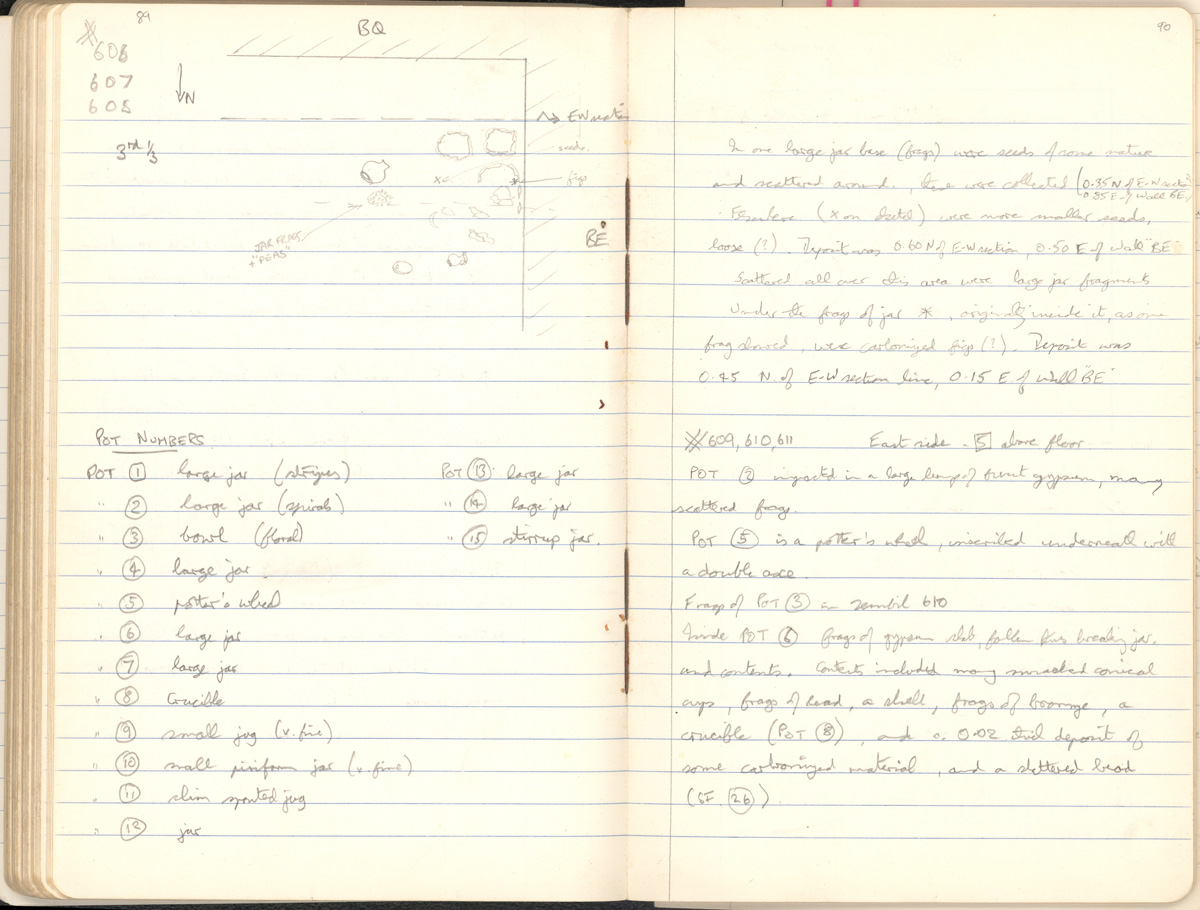 89
BQ
606
607
605
N
3rd 1/3
E-W section
seeds.
figs
JAR FRAGS
+ "PEAS"
BE
POT NUMBERS
POT 1 large jar (stripes)
" 2 large jar (spirals)
" 3 bowl (floral)
" 4 large jar
" 5 potter's wheel
" 6 large jar
" 7 large jar
" 8 Crucible
" 9 small jug (v. fine)
" 10 small piriform jar (v. fine)
" 11 slim spouted jug
" 12 jar
POT 13 large jar
" 14 large jar
" 15 stirrup jar.
90
In one large jar base (frags) were seeds of some nature
and scattered around. These were collected (0.35 N of E-W section
0.35 E of Wall BE)
Elsewhere (x on sketch) were more smaller seeds,
loose (?). Deposit was 0.60 N of E-W section, 0.50 E of Wall "BE"
Scattered all over this area were large jar fragments
Under the frags of jar *, originally inside it, as one
frag showed, were carbonized figs (?). Deposit was
0.45 N. of E-W section line, 0.15 E of Wall "BE"
609, 610, 611 East side - 5 above floor.
POT 2 impacted in a large lump of burnt gypsum, many
scattered frags.
POT 5 is a potter's wheel, inscribed underneath with
a double axe.
Frags of POT 3 in zembil 610
Inside POT 6 frags of gypsum slab, fallen thus breaking jar.
and contents. Contents included many smashed conical
cups, frags of lead, a shell, frags of bronze, a
crucible (POT 8), and c. 0.02 thick deposit of
some carbonized material, and a shattered bead
(SF. 26).